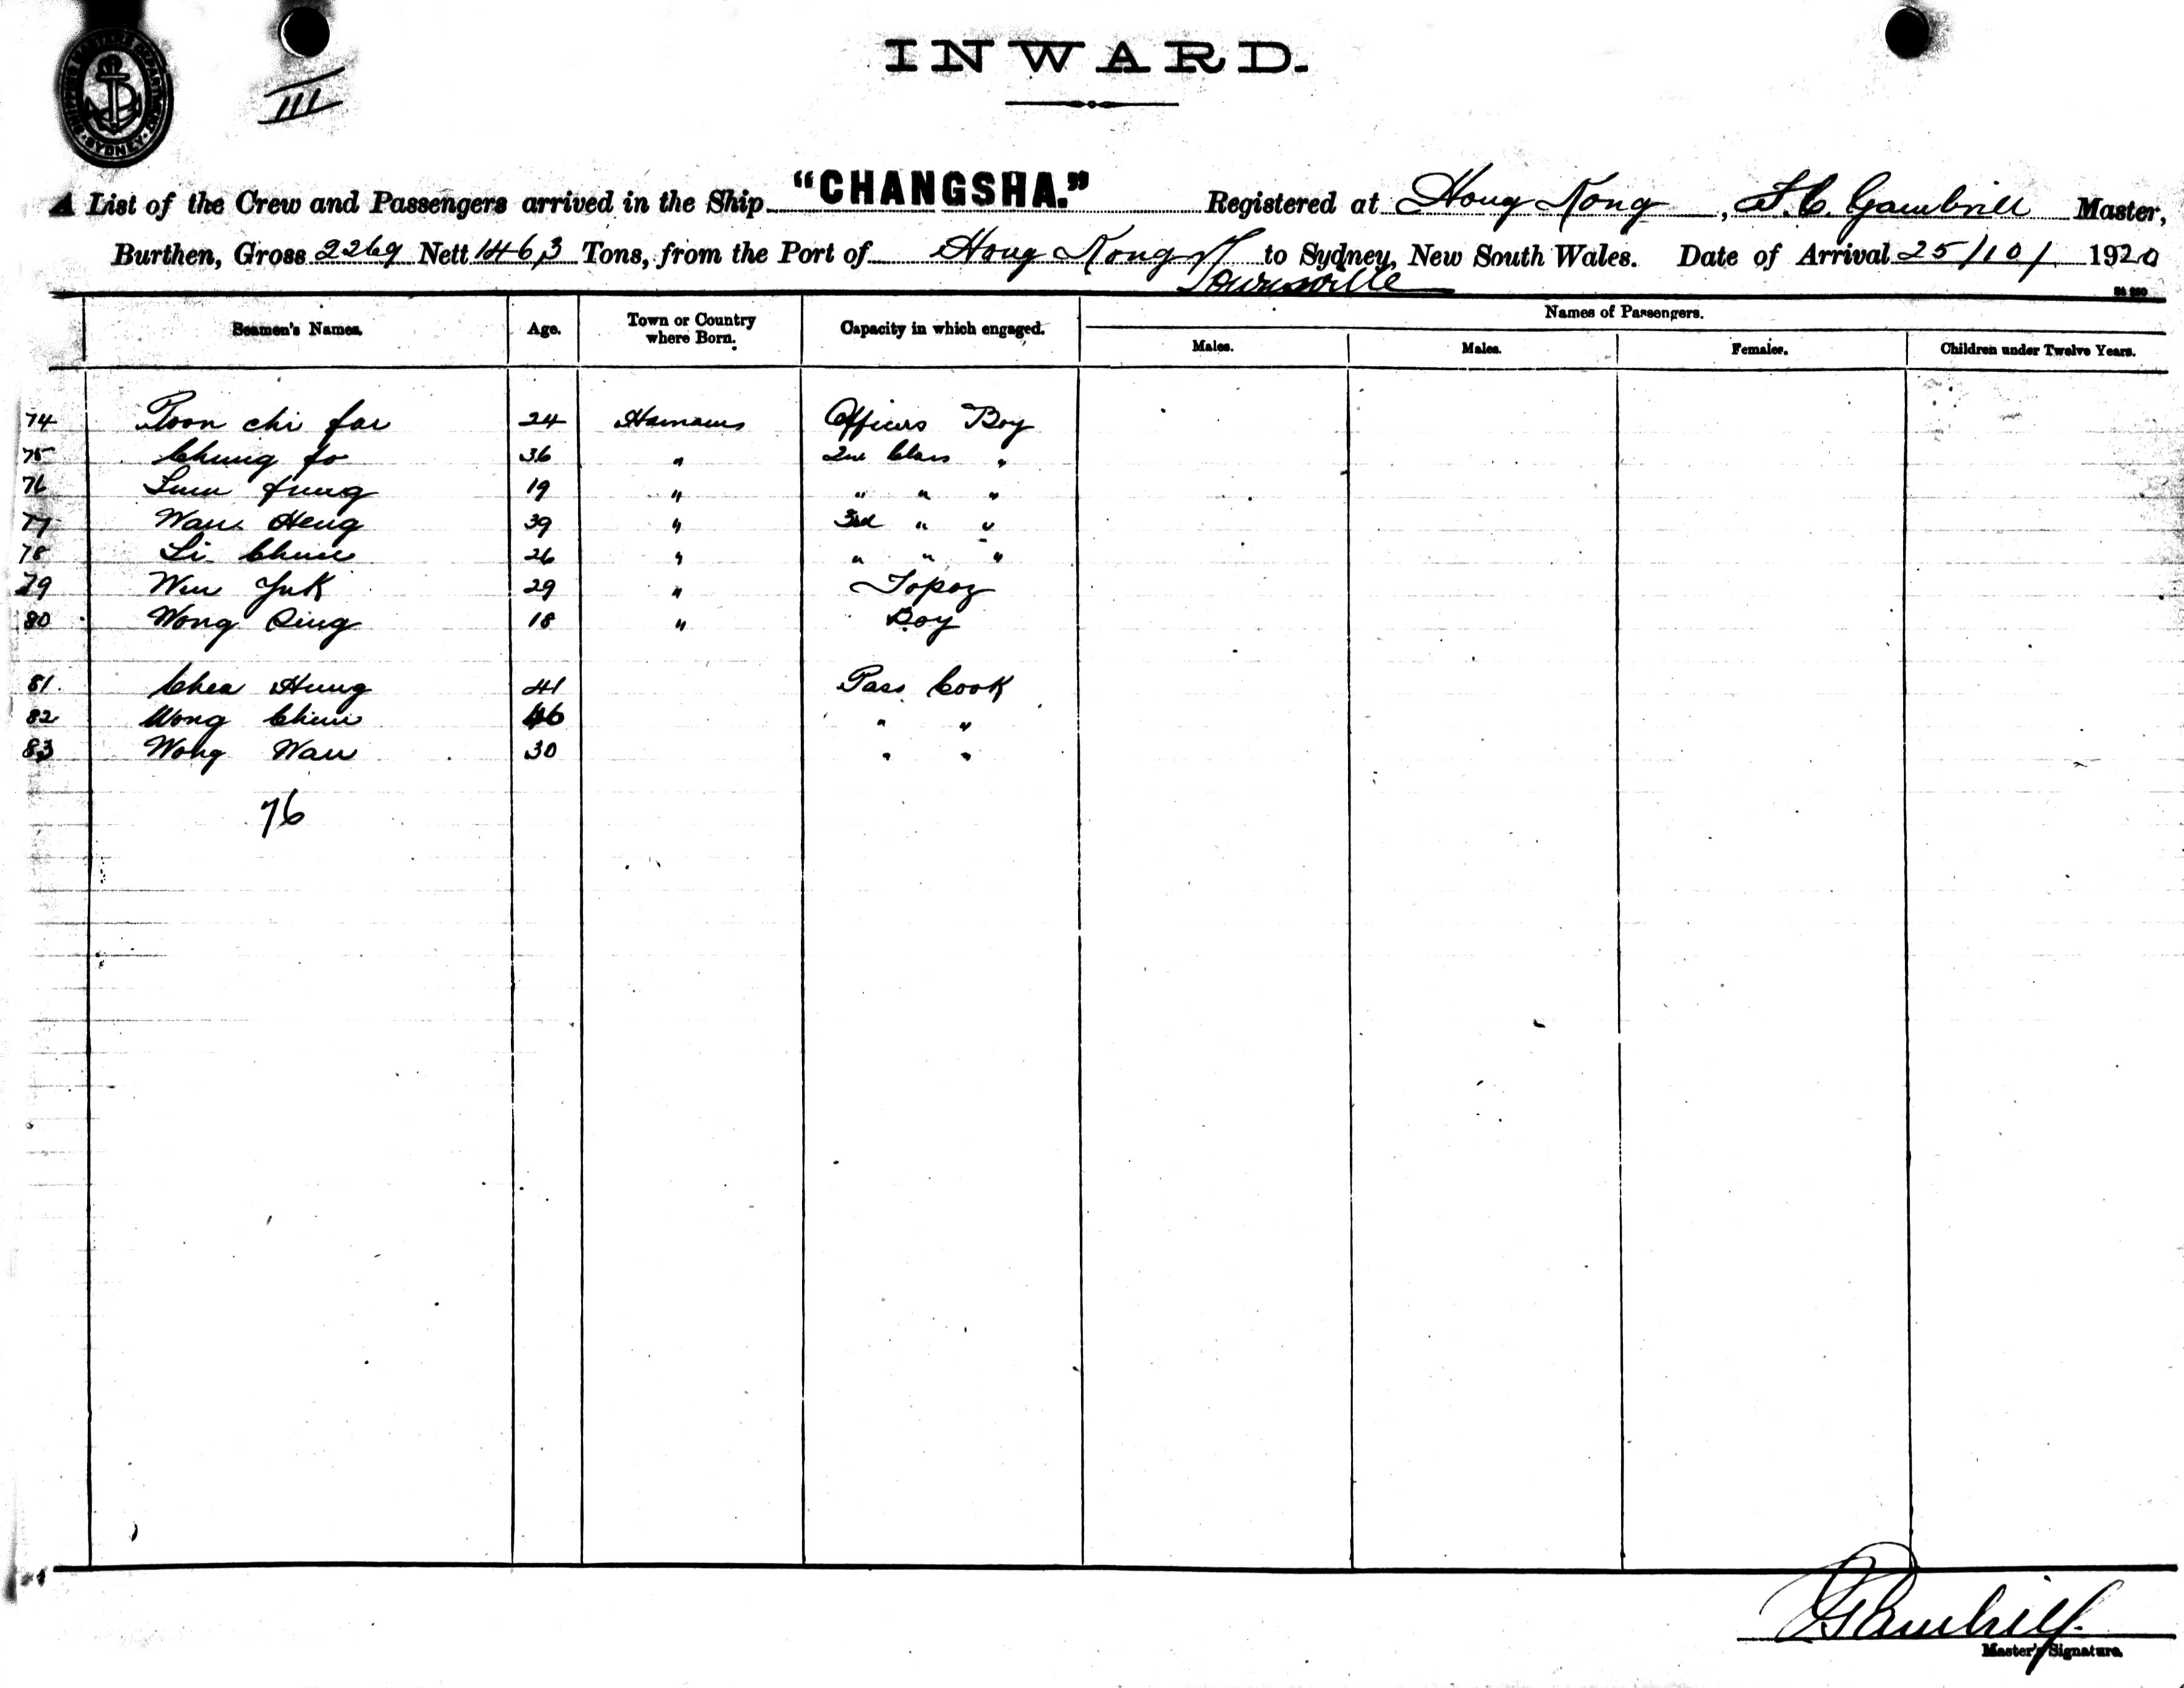 SHIPPING MASTER'S DEPARTMENT
SYDNEY
III
INWARD.
A List of the Crew and Passengers arrived in the Ship "CHANGSHA." Registered at Hong Kong, Gambrill Master,
Burthen, Gross 2269 Nett 1463 Tons, from the Port of Hong Kong to Sydney, New South Wales. Date of Arrival 25/10/1920
Townsville
Seamen's Names. Age. Town or Country where Born. Capacity in which engaged. Names of Passengers.
Males. Males. Females. Children under Twelve Years.
74 Poon chi 24 Officers Boy
75 Chung fo 36 " 2nd Class "
76 19 " " " "
77 Wan Heng 39 " 3rd " "
78 Li 26 " " " "
79 Yuk 29 " Topoz
80 Wong 18 " Boy
81. Hung 41 Pass Cook
82 Wong 46 " "
83 Wong Wan 30 " "
76
Gambrill
Master's Signature.